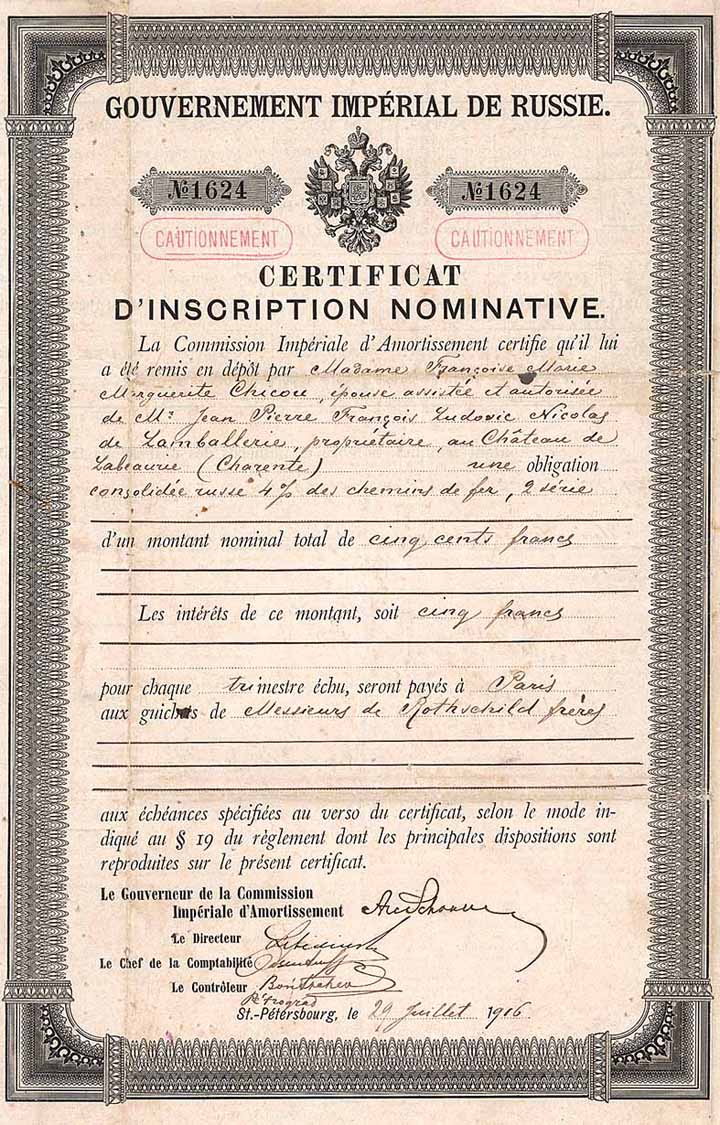 GOUVERNEMENT IMPÉRIAL DE RUSSIE.
№1624 №1624
CAUTIONNEMENT CAUTIONNEMENT
CERTIFICAT
D'INSCRIPTION NOMINATIVE.
La Commission Impériale d'Amortissement certifie qu'il lui
a été remis en dépôt par Madame Françoise Marie
Marguerite Chicou, épouse assistée et autorisée
de Mr. Jean Pierre François Ludovic Nicolas
de Lamballerie, propriétaire, au Château de
Labeaurie (Charente) une obligation
consolidée russe 4% des chemins de fer, 2 série
d'un montant nominal total de cinq cents francs
Les intérêts de ce montant, soit cinq francs
pour chaque trimestre échu, seront payés à Paris
aux guichets de Messieurs de Rothschild frères
aux échéances spécifiées au verso du certificat, selon le mode in-
diqué au § 19 du règlement dont les principales dispositions sont
reproduites sur le présent certificat.
Le Gouverneur de la Commission
Impériale d'Amortissement
Le Directeur
Le Chef de la Comptabilité
Le Contrôleur
Pétrograd
St.-Pétersbourg, le 29 Juillet 1916